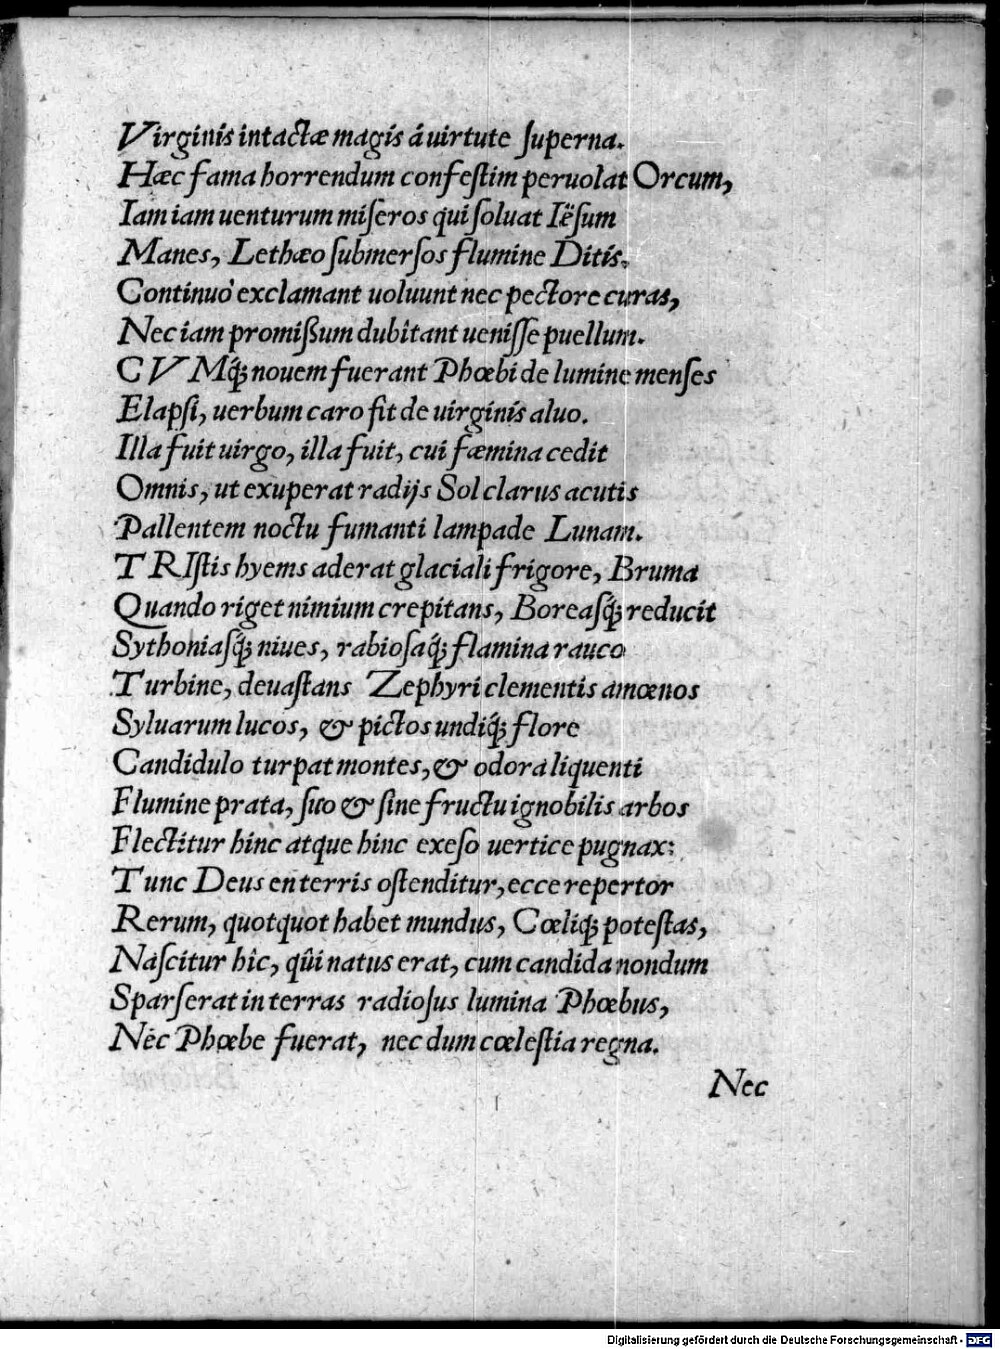 Virginis intactæ magis á uirtute ſuperna.
Hæc fama horrendum confeſtim peruolat Orcum,
Iam iam uenturum miſeros qui ſoluat Iëſum
Manes, Lethæo ſubmerſos flumine Ditis.
Continuò exclamant uoluunt nec pectore curas,
Nec iam promißum dubitant ueniſſe puellum.
CVMq́; nouem fuerant Phœbi de lumine menſes
Elapſi, uerbum caro fit de uirginis aluo.
Illa fuit uirgo, illa fuit, cui fæmina cedit
Omnis, ut exuperat radijs Sol clarus acutis
Pallentem noctu fumanti lampade Lunam.
TRIſtis hyems aderat glaciali frigore, Bruma
Quando riget nimium crepitans, Boreaſq́; reducit
Sythoniaſq́; niues, rabioſaq́; flamina rauco
Turbine, deuaſtans Zephyri clementis amœnos
Syluarum lucos, & pictos undiq́; flore
Candidulo turpat montes, & odora liquenti
Flumine prata, ſuo & ſine fructu ignobilis arbos
Flectitur hinc atque hinc exeſo uertice pugnax:
Tunc Deus en terris oſtenditur, ecce repertor
Rerum, quotquot habet mundus, Cœliq́; poteſtas,
Naſcitur hîc, qûi natus erat, cum candida nondum
Sparſerat in terras radioſus lumina Phœbus,
Néc Phœbe fuerat, nec dum cœleſtia regna.
Nec
Digitalisierung gefördert durch die Deutsche Forschungsgemeinschaft - DFG